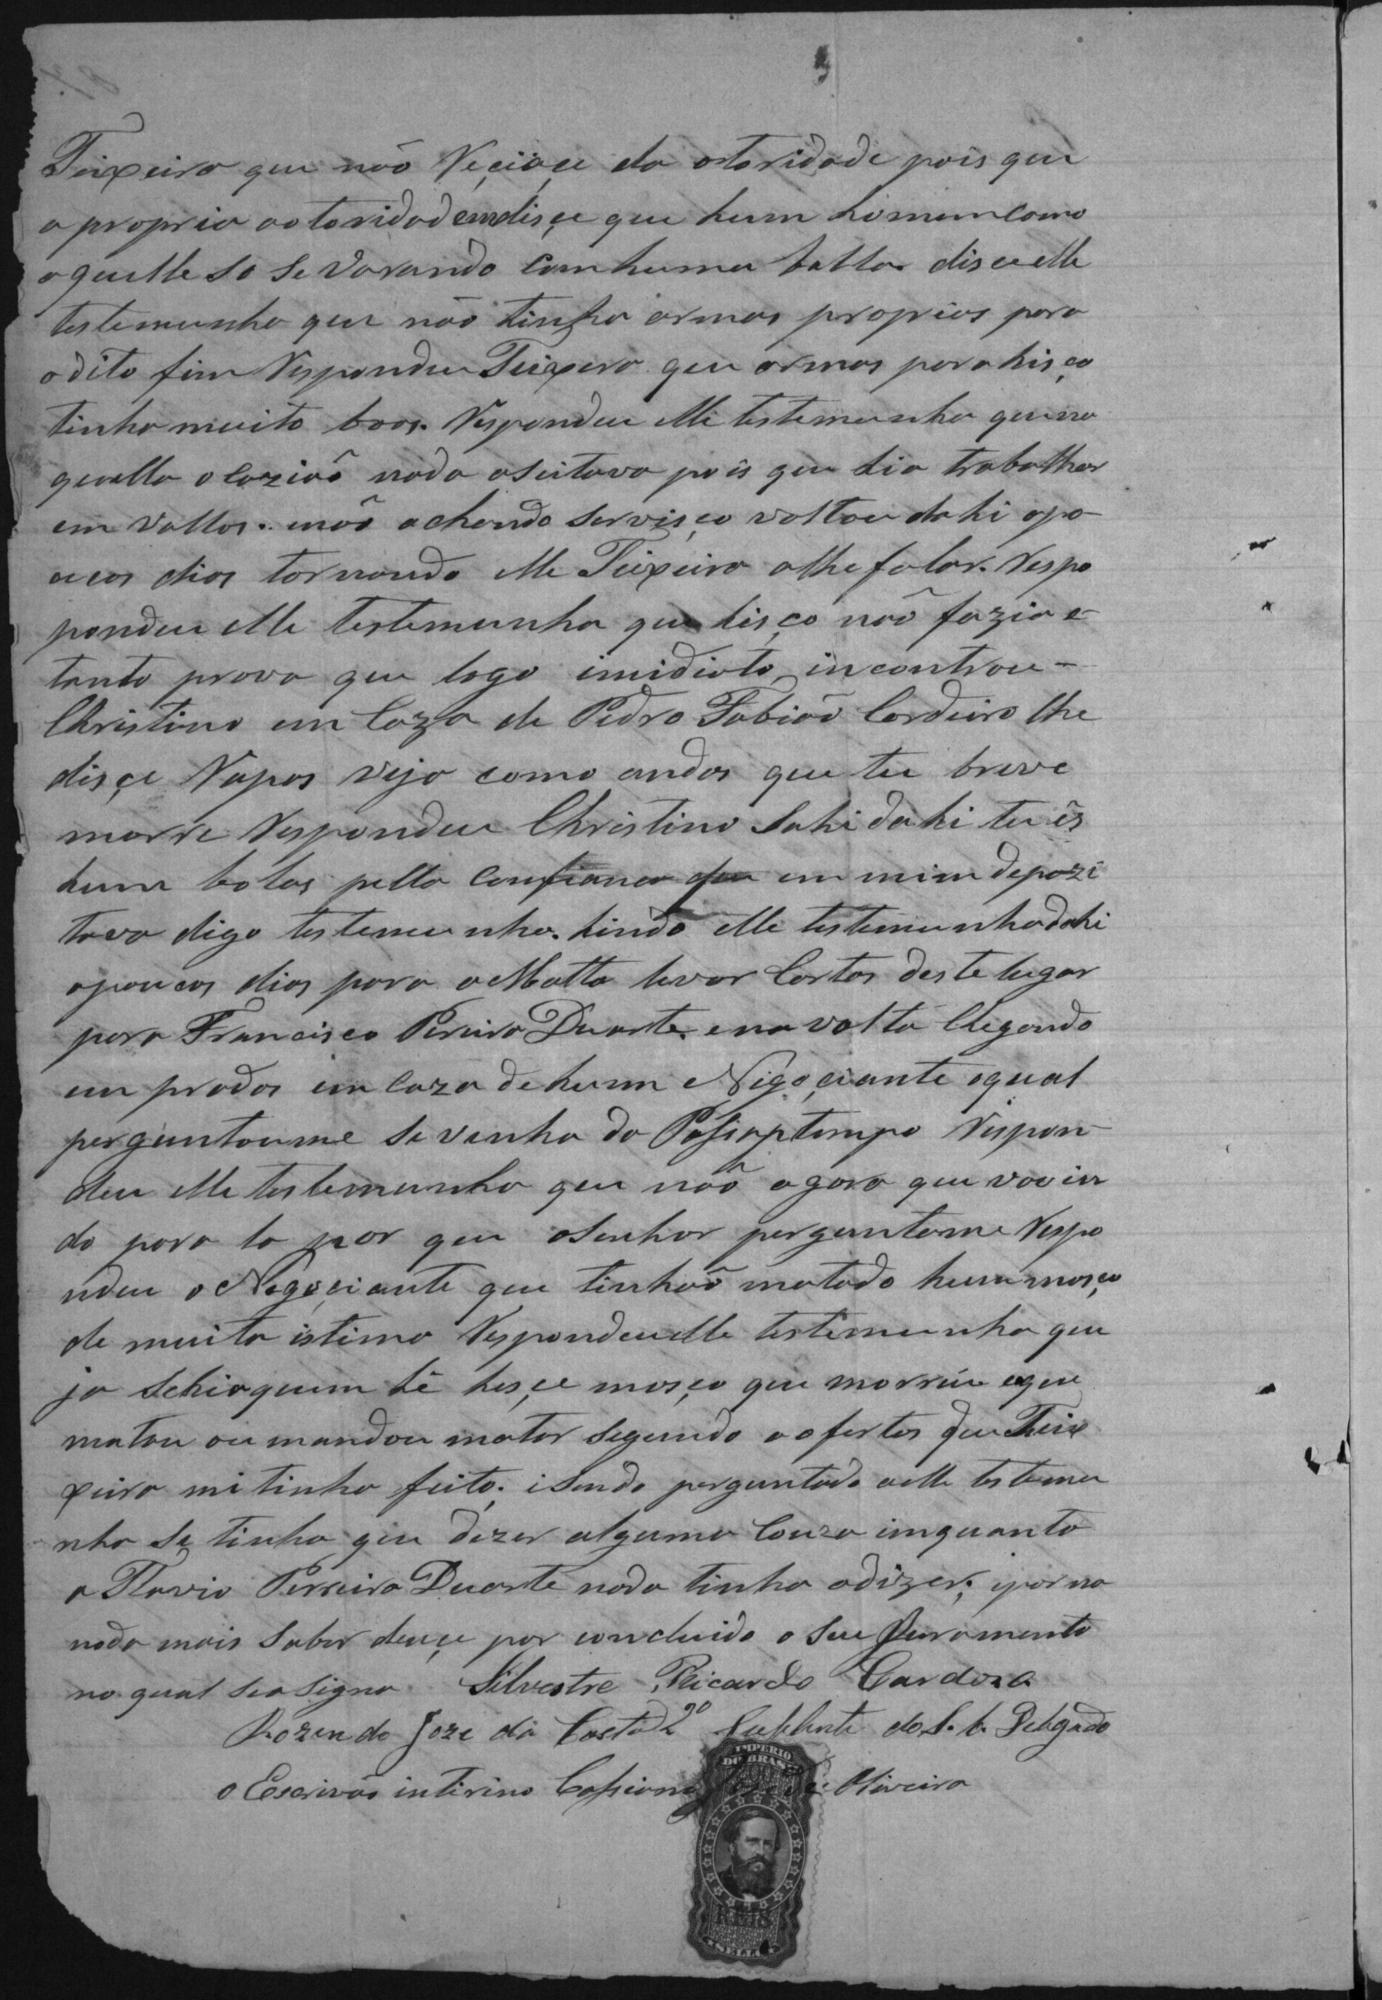 Teixeira que não Reçiaçe da otoridade pois que
a propria aotoridade mdisçe que hum homem como
aquelle so se varando com huma balla. disce elle
testemunha que não tinha armas proprias para
o dito fim Respondeu Teixera que armas para hisço
tinha muito boas. Respondeu elle testemunha que na
quella ocazião nada aseitava pois que hia trabalhar
em vallos. não achando servisço voltou dahi apo-
ucos dias tornando elle Teixeira a lhe falar. Respo
pondeu elle testemunha que hisço não fazia e
tanto prova que logo imidiato incontrou-
Christino em Caza de Pedro Fabião Cordeiro lhe
disçe Rapas veja como andas que tu breve
morre Respondeu Christino Sahi dahi tu és
hum bolas pella Confiança que em mim depozi
tava digo testemunha. hindo elle testemunha dahi
apoucos dias para a Matta levar Cartas deste lugar
para Francisco Pereira Duarte. e na volta Chegando
em prados em Caza de hum Nigoçiante o qual
perguntoume se vinha do Passaptempo Respon-
deu elle testemunha que não agora que vou in
do para la por que o senhor perguntame Respo
ndeu o Negoçiante que tinhão matado hum mosço
de muita istima Respondeu elle testemunha que
ja sehia quem hé hesçe mosço que morreu e que
matou ou mandou matar segundo a ofertas que Teix
xeira mi tinha feito. i sendo perguntado a elle testemu
nha se tinha que dizer alguma Couza imquanto
a Flavio Perreira Duarte nada tinha a dizer. i por na
nada mais saber deuçe por concluido o seu Juramento
no qual se asigna Silvestre Ricardo Cardoza
Rozendo Joze da Costa 2º Suplente do S. b. Delgado
o Escrivão intirino Cassiano José de Oliveira
IMPERIO
DO BRASIL
REIS
SELLO